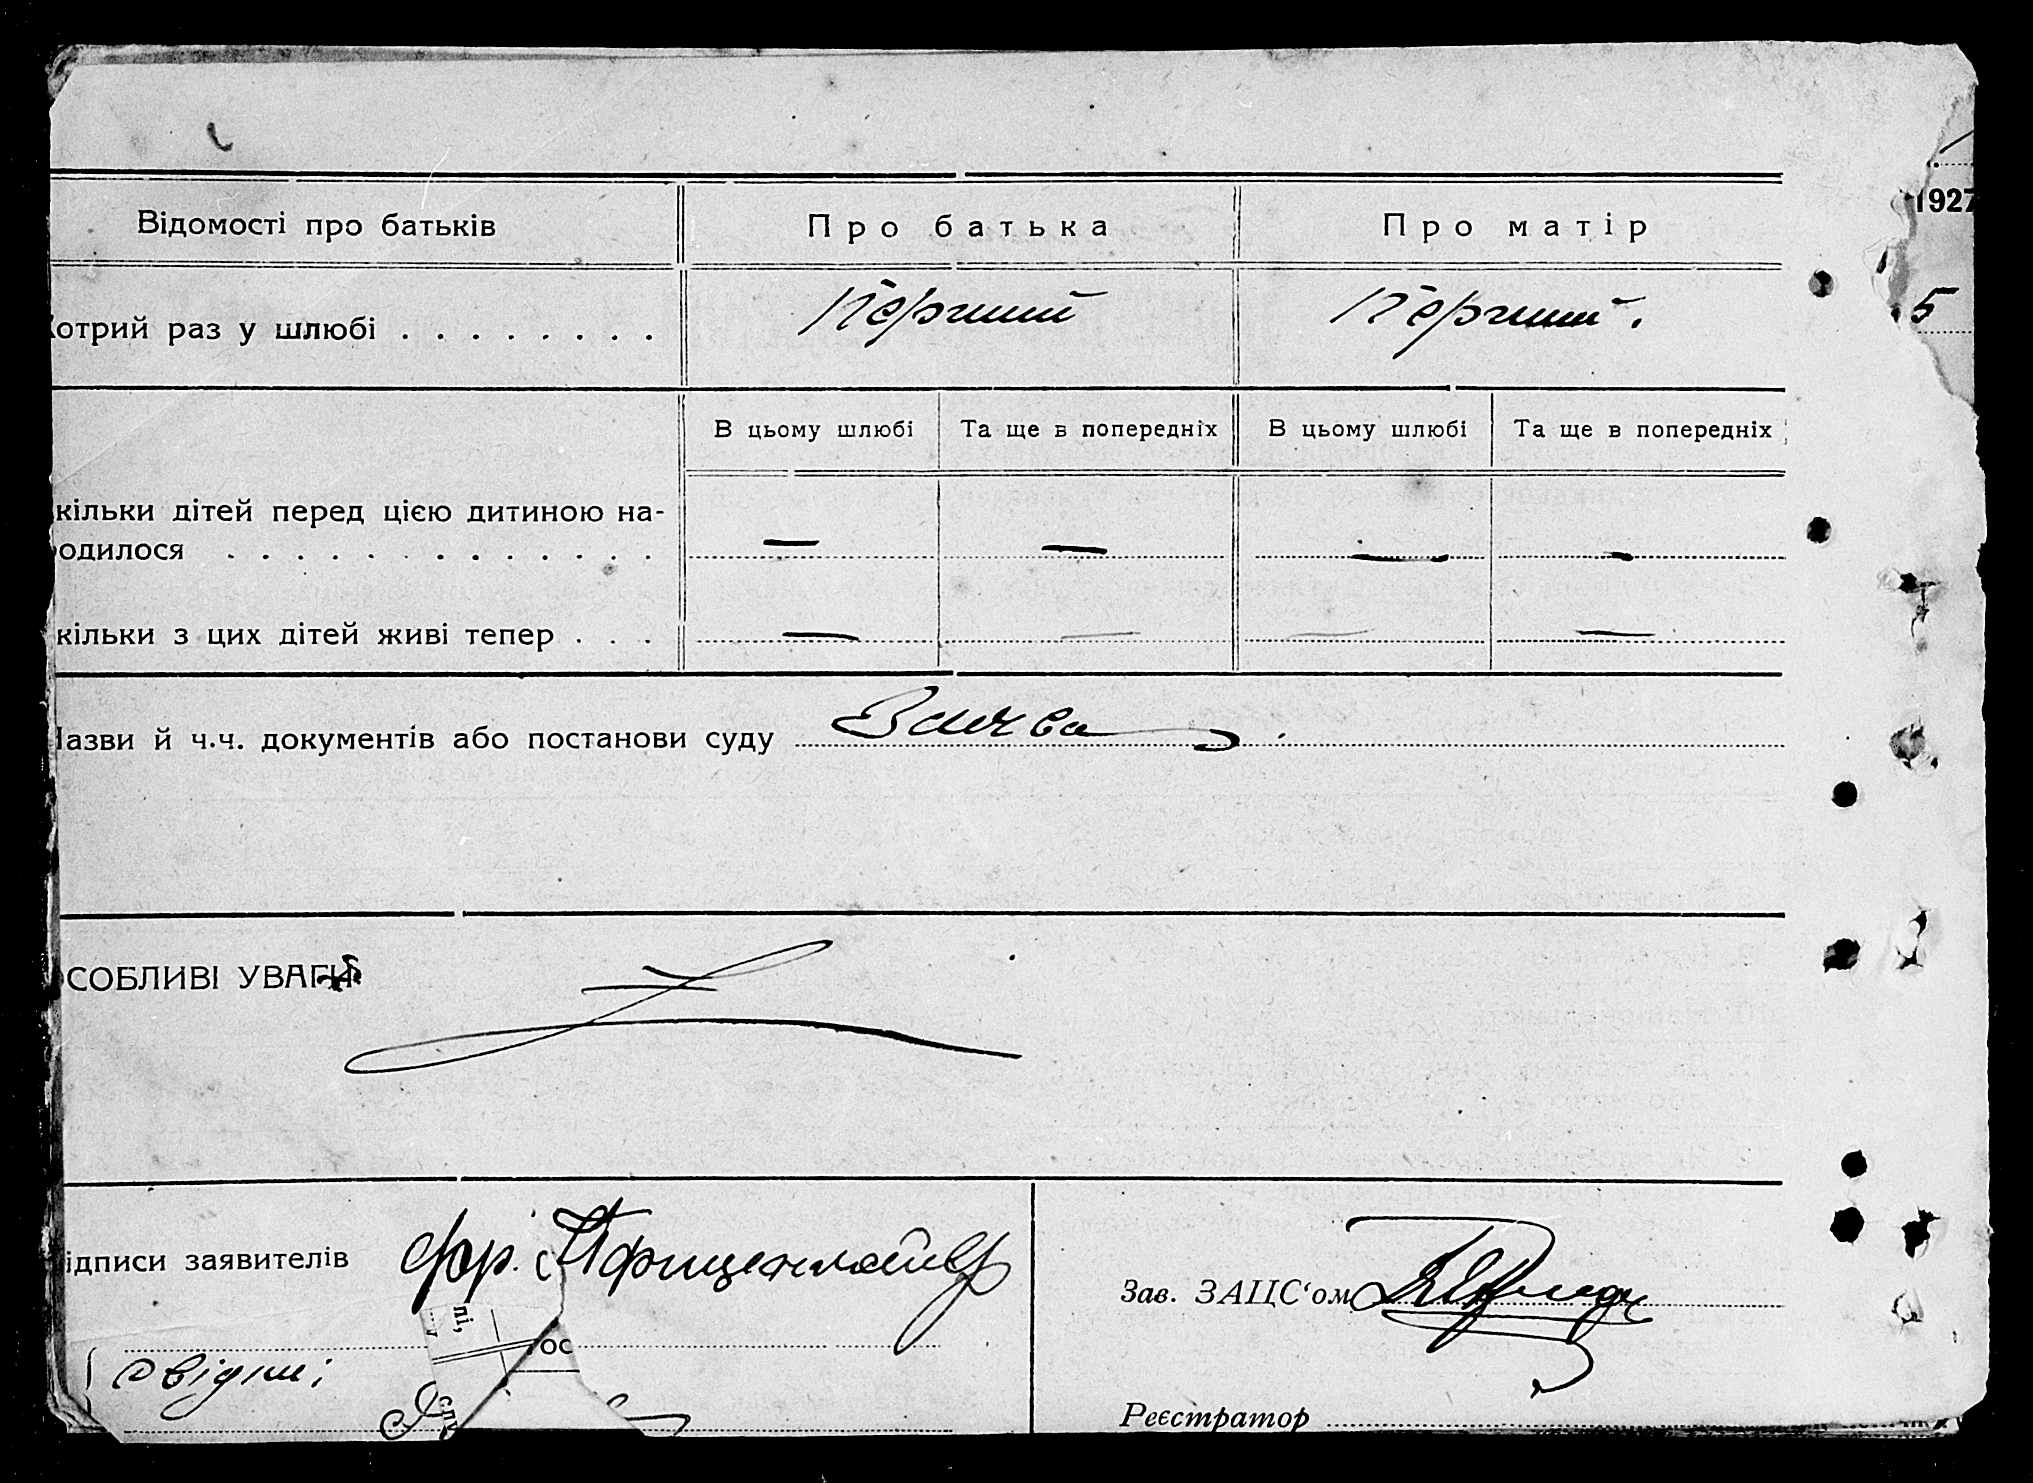 1927
Відомості про батьків Про батька Про матір
Котрий раз у шлюбі Перший Перший. 5
В цьому шлюбі Та ще в попередніх В цьому шлюбі Та ще в попередніх
кільки дітей перед цією дитиною на-
родилося — — — —
кільки з цих дітей живі тепер — — — —
Назви й ч.ч. документів або постанови суду Заява
ОСОБЛИВІ УВАГИ
ідписи заявителів
Зав. ЗАЦС‘ом
лі,
ос
свідки:
Реєстратор